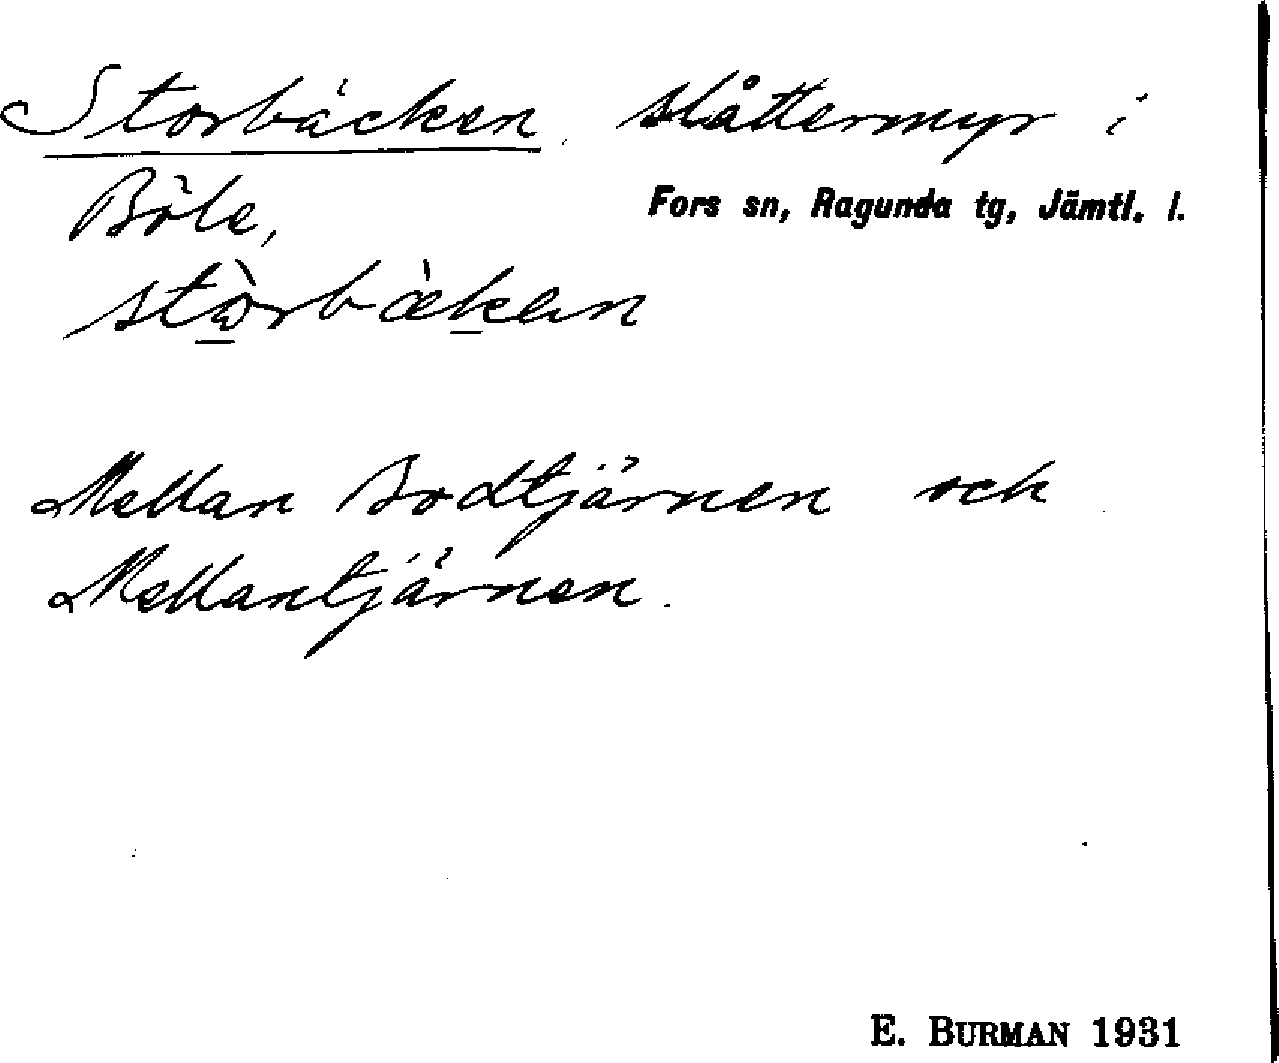 Storbäcken slåttermyr i
Böle, Fors sn, Ragunda tg, Jämtl. l.
stὼrbæ̀ken
Mellan Bodtjärnen och
Mellantjärnen.
E. BURMAN 1931